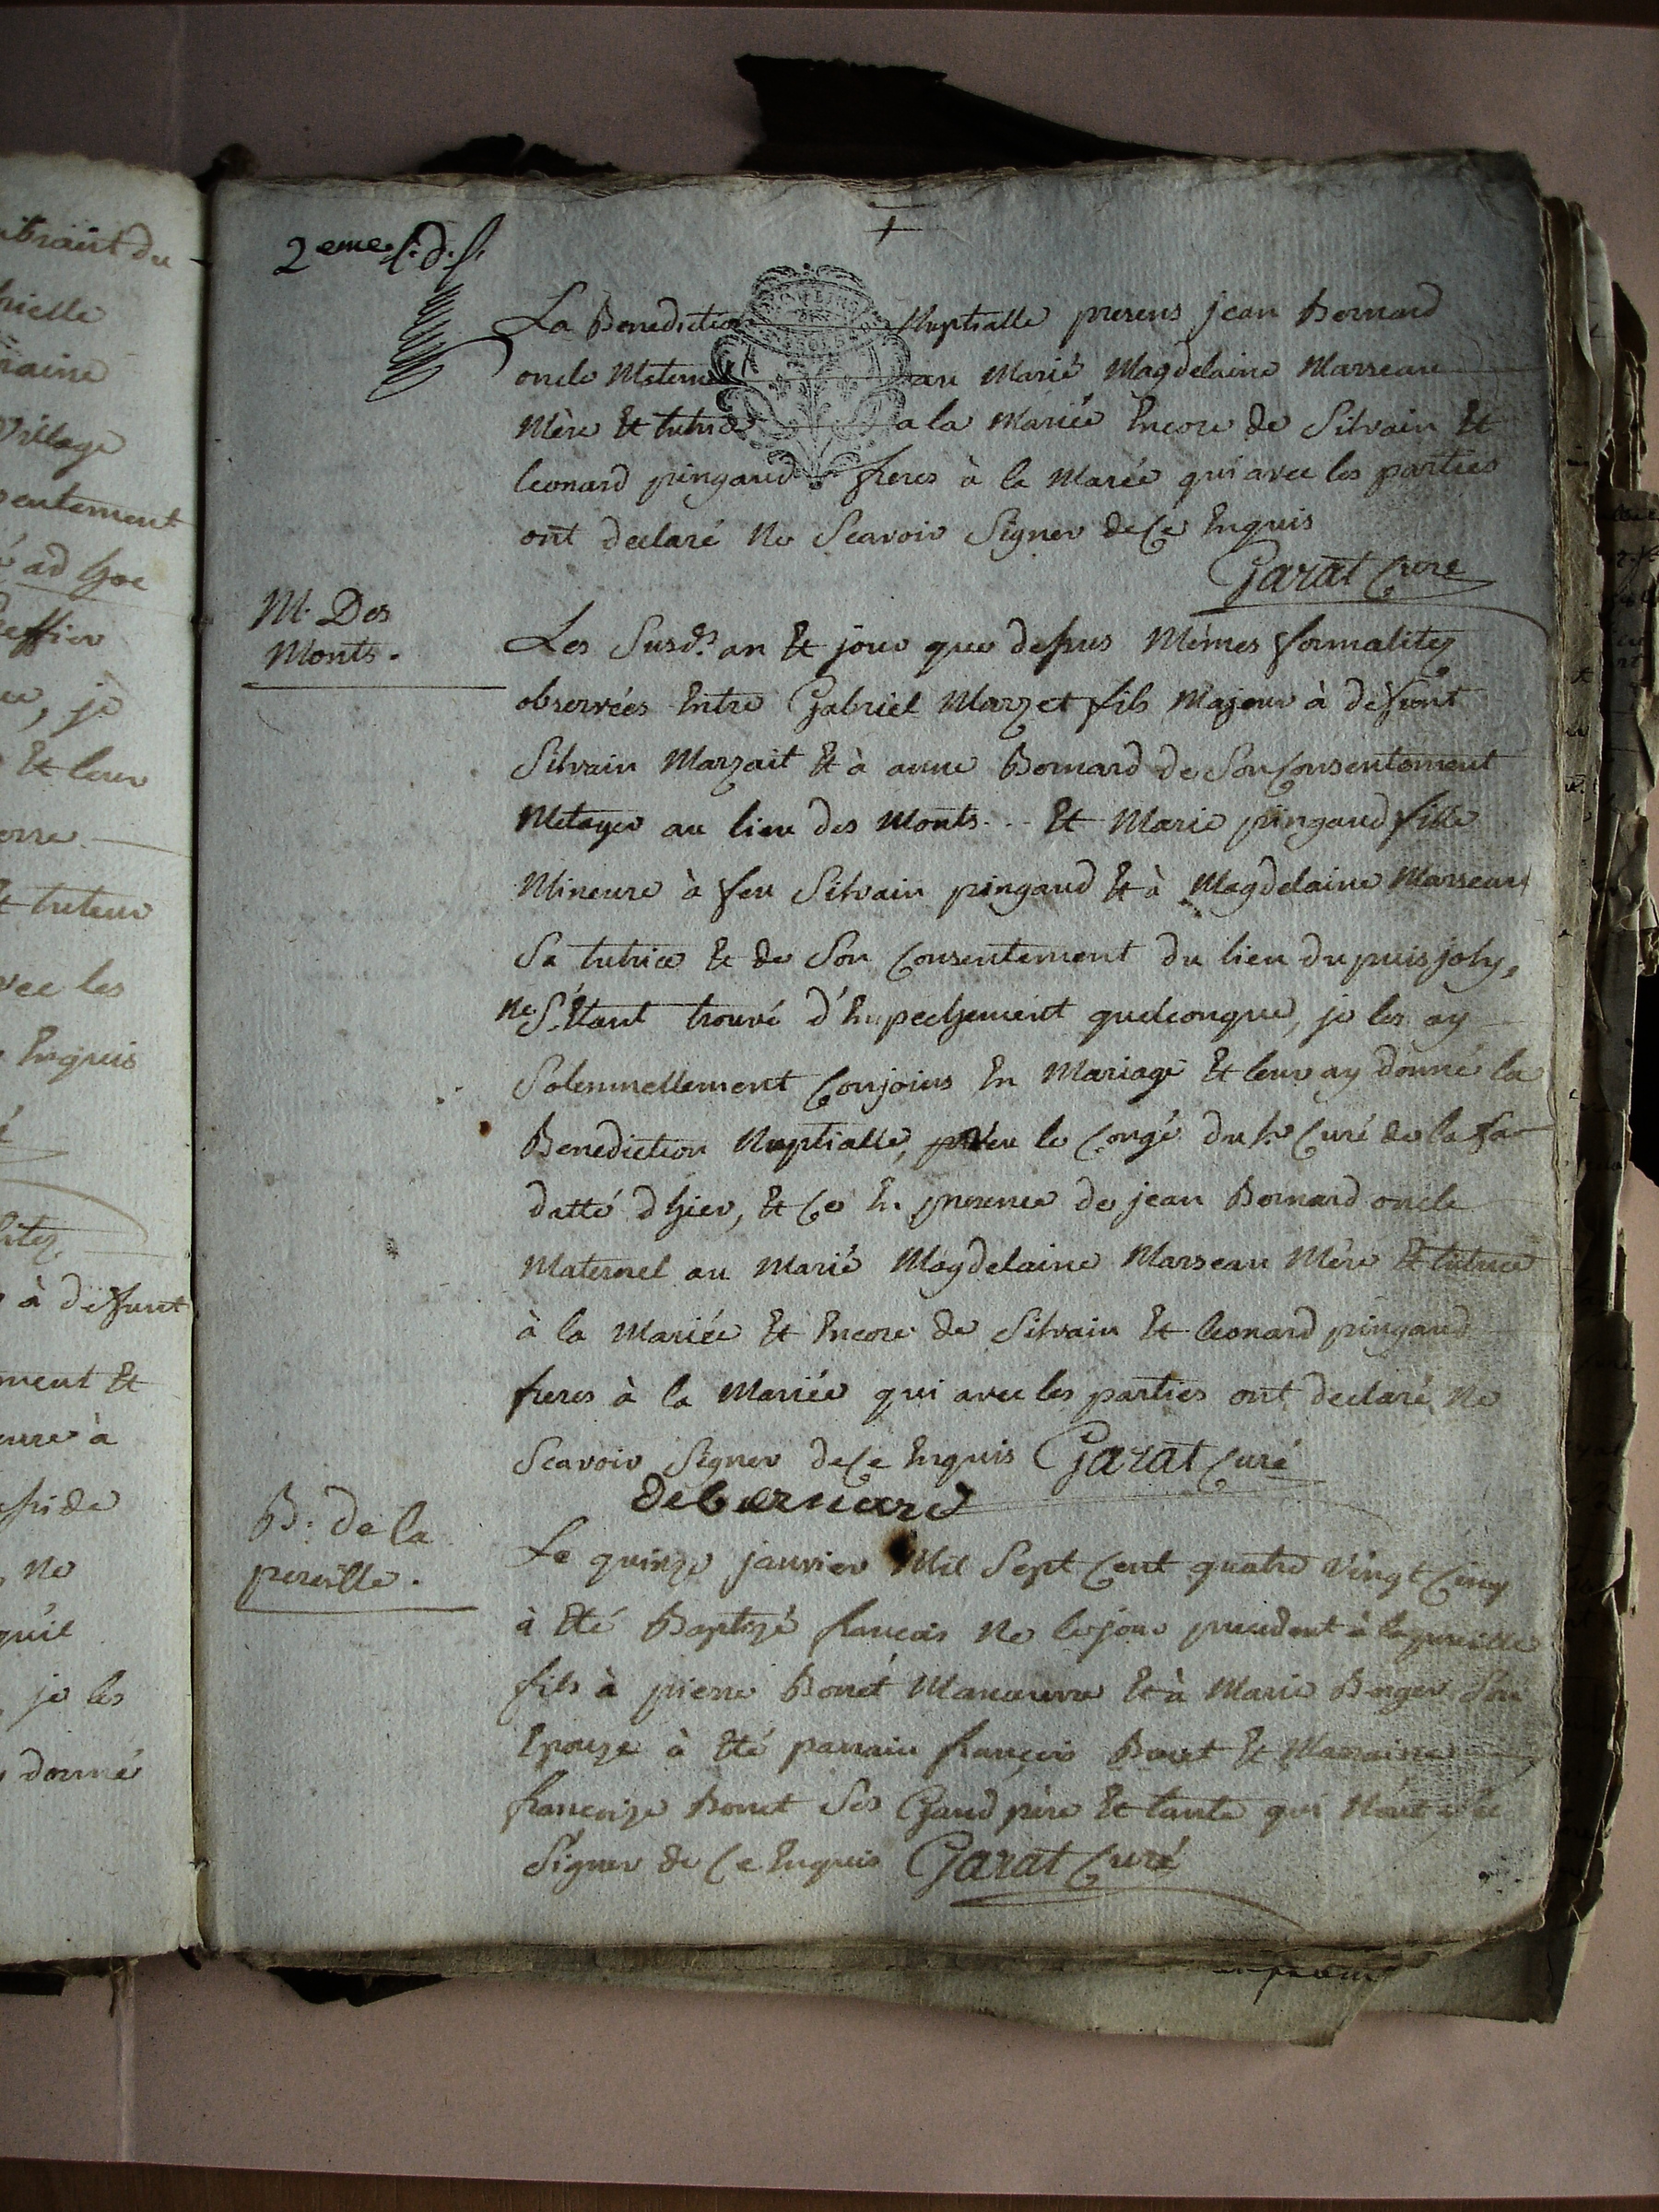 2eme f. d. f.
La Benediction Nuptialle presens jean Bernard
oncle Maternel au Marié Magdelaine Marseau
Mère Et tutrice a la Mariée Encore de Silvain Et
leonard pingaud freres à la Marée qui avec les parties
ont declaré Ne Scavoir Signer de Ce Enquis
Garat Curé
M. Des
Monts.
Les Susd. an Et jour que dessus Mêmes formalitez
observées Entre Gabriel Marzet fils Majeur à defunt
Silvain Marzait Et à anne Bernard de Son Consentement
Metayer au lieu des Monts Et Marie pingaud fille
Mineure à feu Silvain pingaud Et à Magdelaine Marseau
Sa tutrice Et de Son Consentement du lieu du puisjoly,
ne S'Etant trouvé d'Empechement quelconque, je les ay
Solemnellement Conjoins En Mariage Et leur ay donné la
Benediction Nuptialle, le Congé du Sr Curé de la
datté d'hier, Et Ce En presence de jean Bernard oncle
Maternel au Marié Magdelaine Marseau Mère Et tutrice
à la Mariée Et Encore de Silvain Et leonard pingaud
freres à la Mariée qui avec les parties ont declaré Ne
Scavoir Signer de Ce Enquis Garat Curé
debernard
B. de la
pereille.
Le quinze janvier Mil Sept Cent quatre Vingt Cinq
à Eté Baptizé francois Ne le jour precedent à la pereille
fils à pierre Bonet Manoeuvre Et à Marie Berger Son
Epouze à Eté parrain françois Bonet Et Marraine
francoize Bonet Ses Grand père Et tante qui N'ont
Signer de Ce Enquis Garat Curé
ibrant du
rielle
raine
Village
sentement
ad hoc
je
Et leur
Et tuteur
vec les
Enquis
à defunt
ment Et
eure à
ne
qu'il
je les
donné